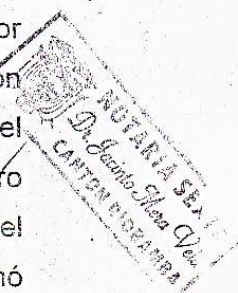 or
on
el
ro
el
nó
NOTARIA SEX
Dr. Jacinto Mera Vela
CANTON RIOBAMBA